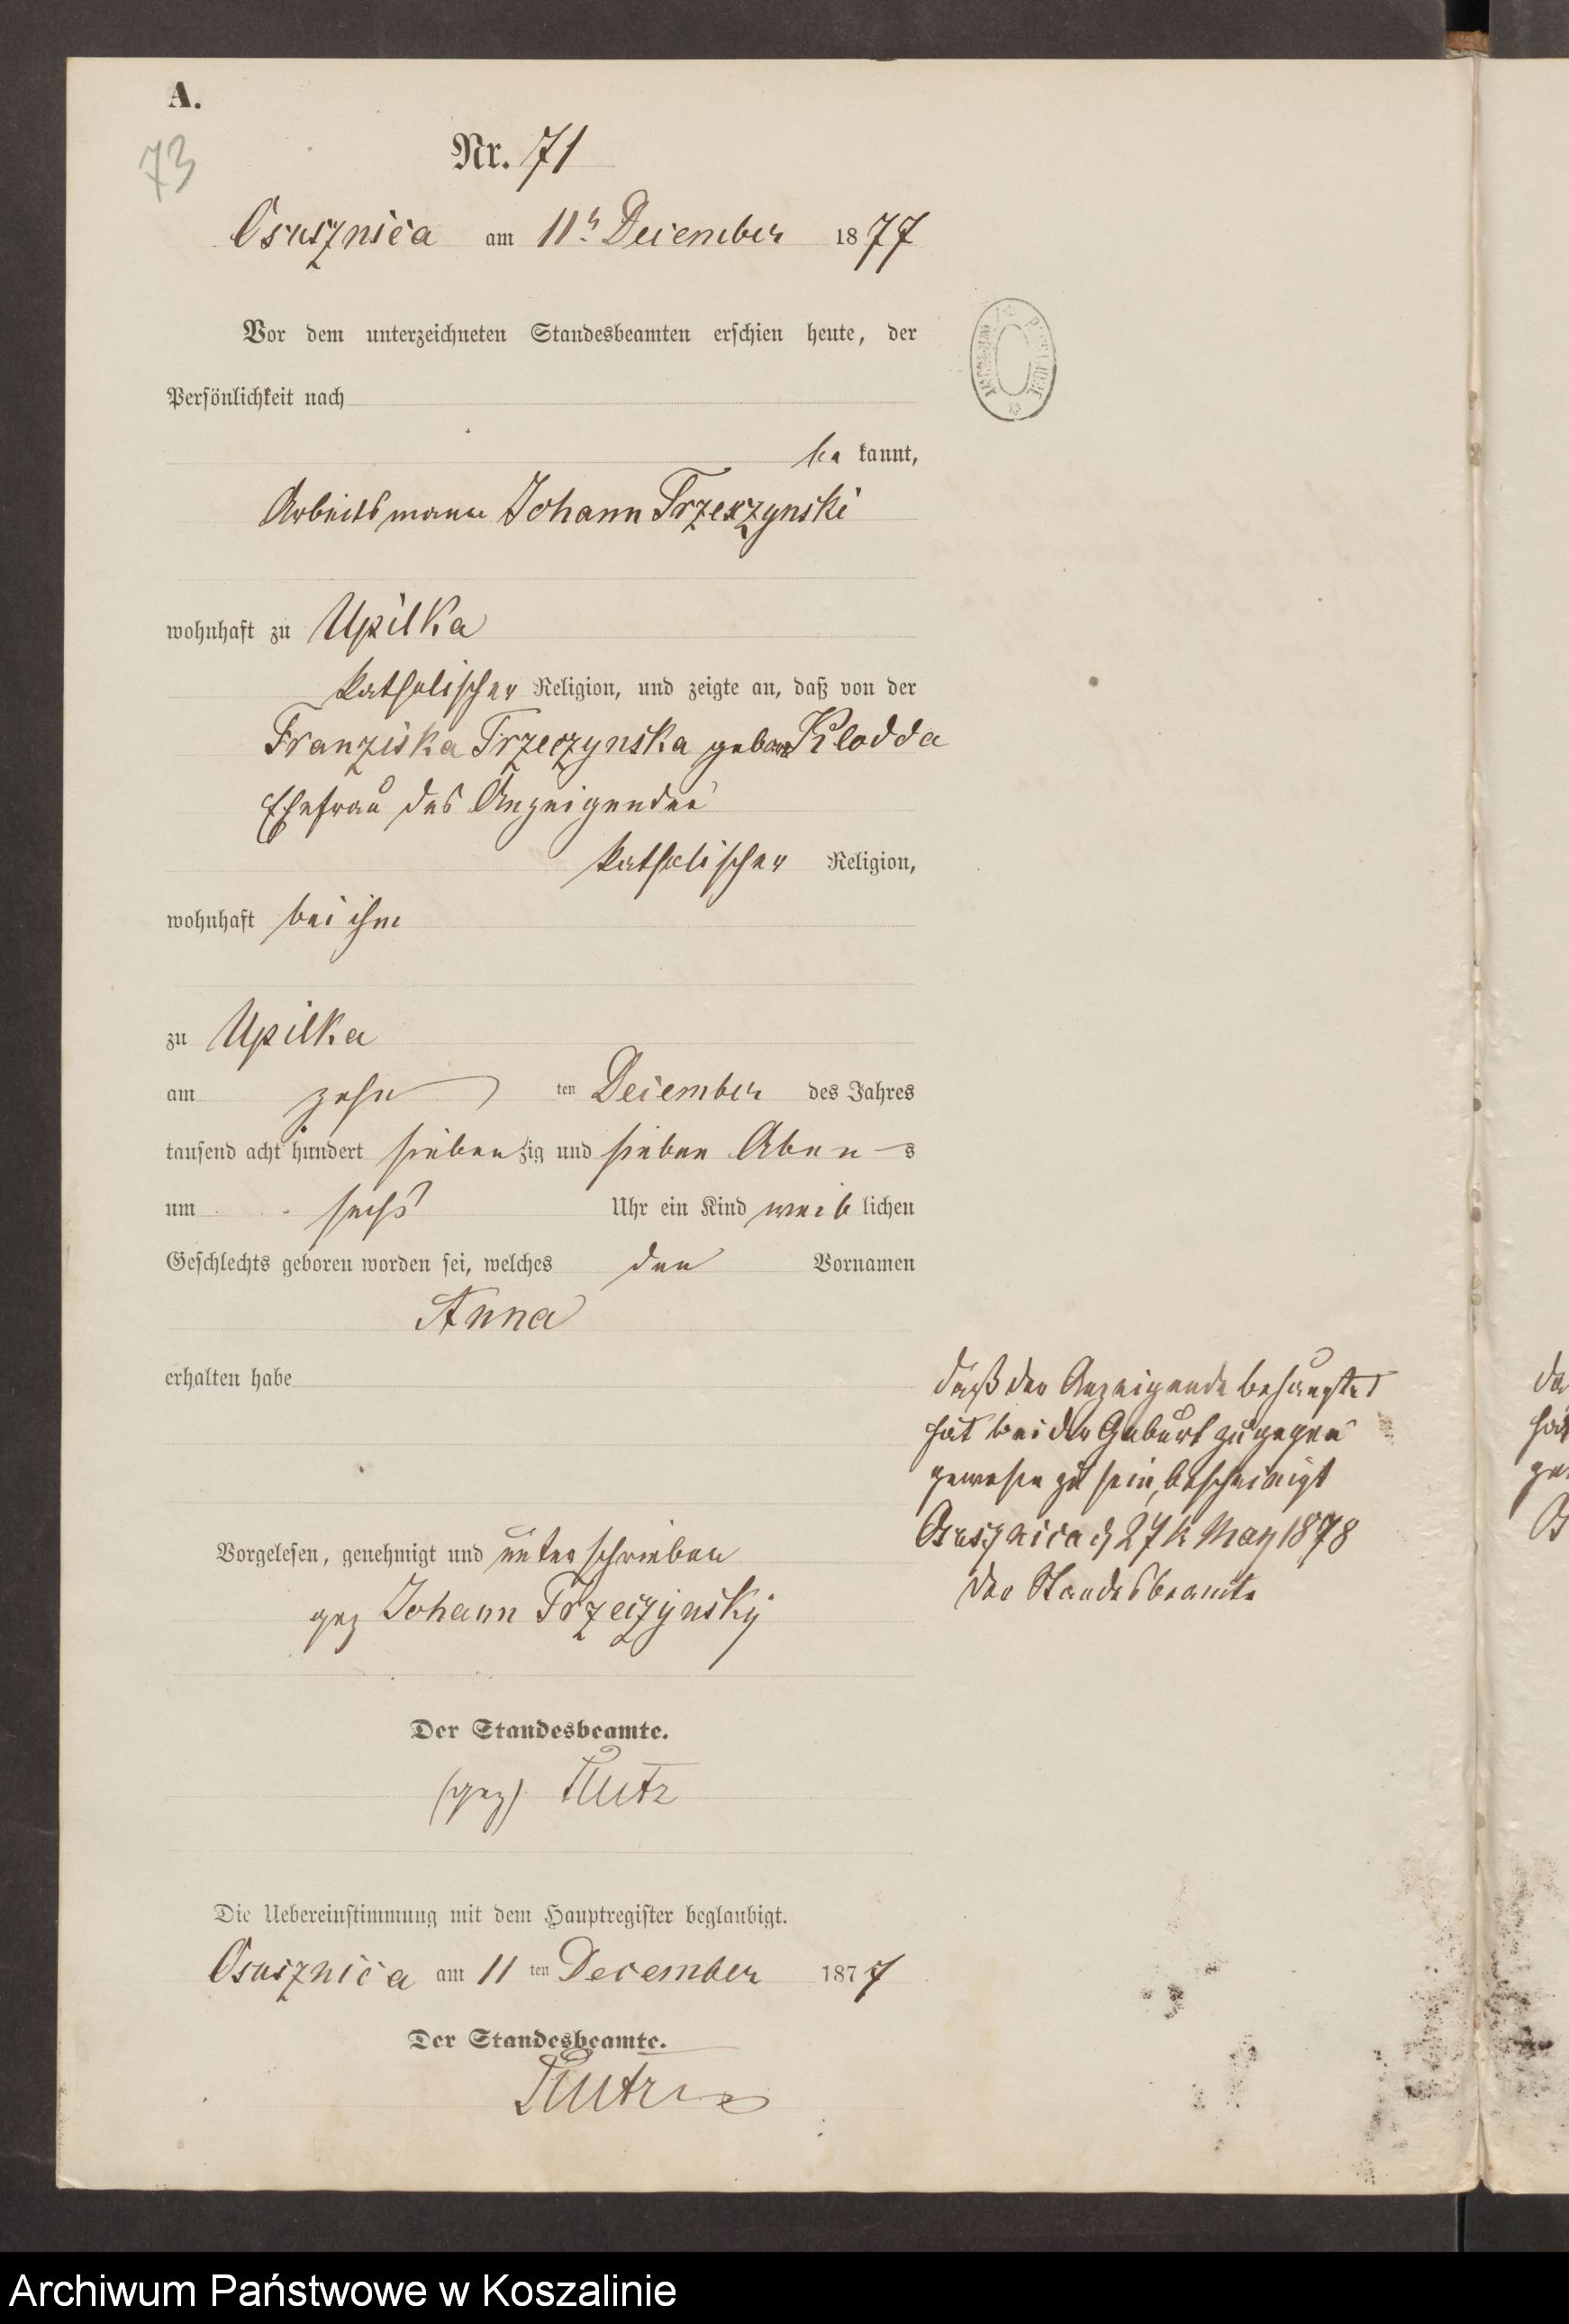 A.
73
Nr. 71
Osusznica am 11t December 1877
Vor dem unterzeichneten Standesbeamten erschien heute, der
Persönlichkeit nach
be kannt,
Arbeitsmann Johann Trzeczynski
wohnhaft zu Upilka
katholischer Religion, und zeigte an, daß von der
Franziska Trzeczynska geborne Klodda
Ehefrau des Anzeigenden
katholischer Religion,
wohnhaft bei ihm
zu Upilka
am zehn ten December des Jahres
tausend acht hundert siebenzig und sieben Aben s
um sechs Uhr ein Kind weib lichen
Geschlechts geboren worden sei, welches den Vornamen
Anna
erhalten habe
daß der Anzeigende behauptet
hat bei der Geburt zugegen
gewesen zu sein, bescheinigt
Osusznica d 27t May 1878
der Standesbeamte
Vorgelesen, genehmigt und unterschrieben
gez Johann Trzeczynsky
Der Standesbeamte.
(gez)
Die Uebereinstimmung mit dem Hauptregister beglaubigt.
Osusznica am 11 ten December 1877
Der Standesbeamte.
Archiwum Państwowe w Koszalinie